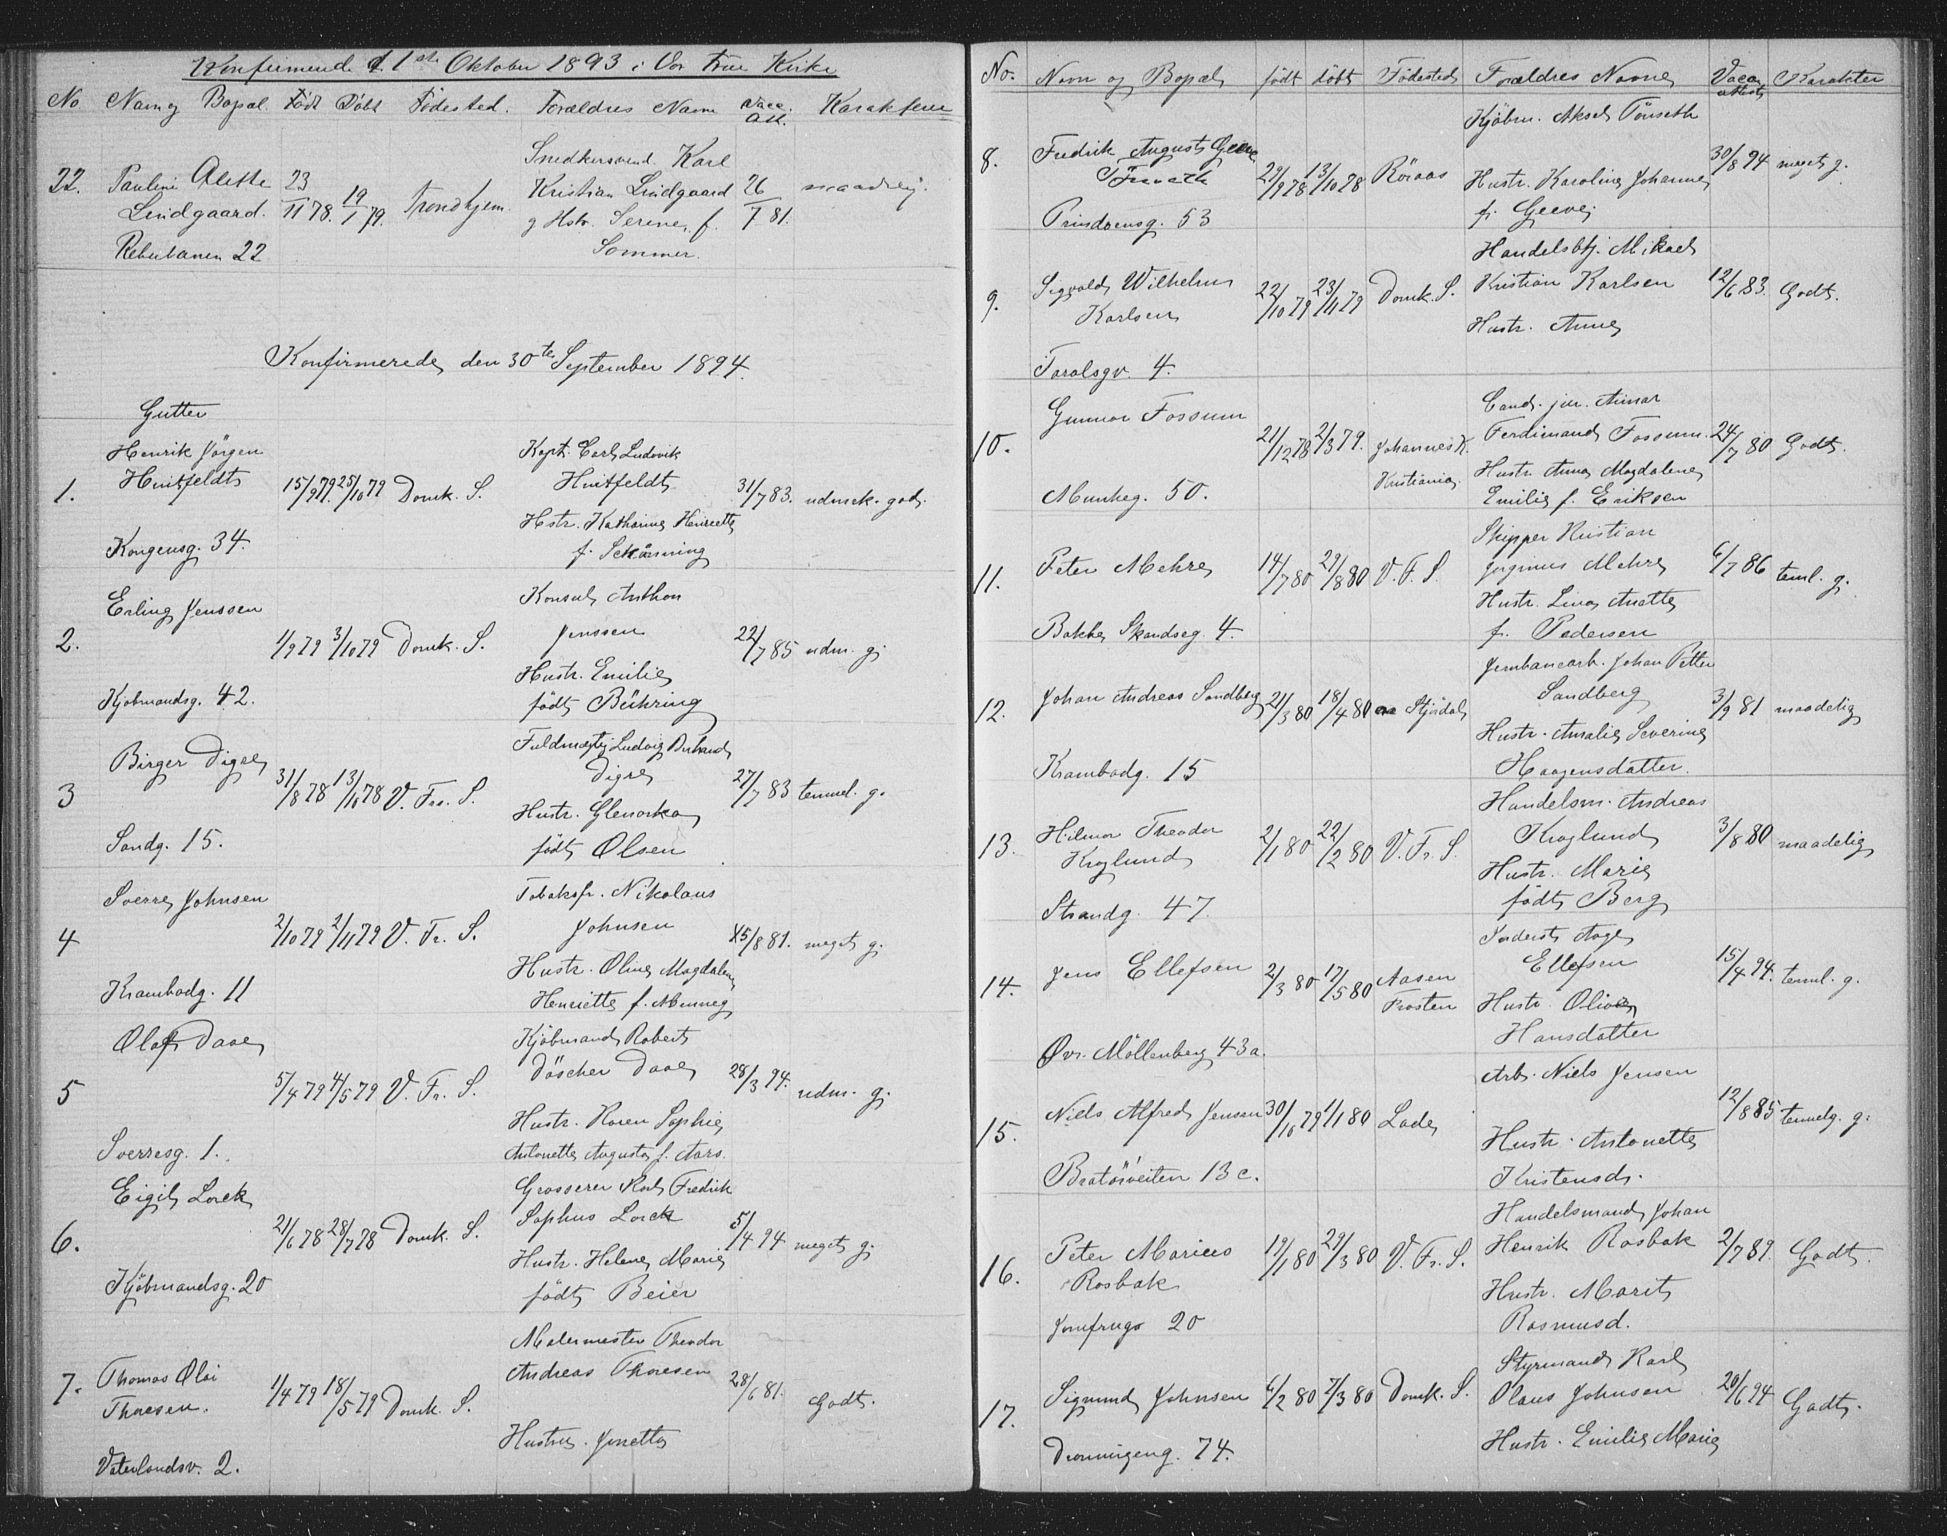 Konfirmerede d. 1ste Oktober 1893 i Vor Frue Kirke
No Navn og Bopæl. Født Döbt Födested. Forældres Navn Vacc. Att. Karakteren
22. Pauline Alette Lindgaard. 23/11 78. 19/1 79. Trondhjem. Snedkersvend Karl Kristian Lindgaard og Hstr. Serene, f. Sommer. 26/7 81. maadelig.
Reberbanen 22
Konfirmerede den 30te September 1894.
Gutter
1. Henrik Jörgen Huitfeldt 15/9 79. 25/10 79 Domk. S. Kapt. Carl Ludvik Huitfeldt Hstr. Katharine Henriette f. 31/7 83. udmrk. godt.
Kongensg. 34.
2. Erling Jenssen 1/9 79 3/10 79 Domk. S. Konsul Anthon Jenssen Hustr. Emilie født Bühring 22/7 85 udm. g.
Kjobmandsg. 42.
3 Birger Digre 31/8 78 13/10 78 V. Fru. S. Fuldmægtig Ludvig Digre Hustr. født Olsen 27/7 83 temmel. g.
Sandg. 15.
4 Sverre Johnsen 2/10 79 2/11 79 V. Fr. S. Tobaksfr. Nikolaus Johnsen Hustr. Oline Magdalena Henriette f. 15/8 81. meget g.
Krambodg. 11
5 Olaf Daae 5/4 79 4/5 79 V. Fr. S. Kjöbmand Robert Döscher Daae Hustr. Karen Sophie Antonette Augusta f. Aars. 28/3 94. udm. g.
Sverresg. 1.
6. Eigil Lorck 21/6 78 28/7 78 Domk. S. Grosserer Karl Fredrik Sophus Lorck Hustr. Helene Marie født Beier 5/4 94 meget g.
Kjöbmandsg. 20
7. Thomas Olai Thoresen. 1/4 79 18/5 79 Domk. S. Malermester Theodor Andreas Thoresen Hustru. Jonetta 28/6 81. Godt.
Vaterlandsv. 2.
No. Navn og Bopæl født döbt Födested Forældres Navne Vacc. attest Karakter
8. Fredrik August Geeve Tönseth 29/9 78 13/10 78 Röraas Kjöbm. Aksel Tönseth Hustr. Karoline Johanne f. Geeve 30/8 94 meget g.
Prindsensg. 53
9. Sigvald Wilhelm Karlsen 22/10 79 23/11 79 Domk. S. Handelsbtj. Mikael Kristian Karlsen Hustr. Anne 12/6 83. Godt.
4.
10. Gunnar Fossum 21/12 78 2/3 79. Johannes K. Kristiania Cand. jur. Ferdinand Fossum. Hustr. Anna Magdalene Emilie f. Eriksen 24/7 80 Godt.
Munkeg. 50.
11. Peter Mehre 14/7 80 29/8 80 V. F. S. Skipper Kristian Jörginus Mehre Hustr. Lina Anette f. Pedersen 6/7 86 teml. g.
Bakke Skandseg. 4.
12. Johan Andreas Sandberg 21/3 80 18/4 80 Stjørdal Jernbanearb. Johan Petter Sandberg Hustr. Amalie Severine Haagensdatter. 3/9 81 maadelig
Krambodg. 15
13. Hilmar Theodor Kroglund 2/1 80 22/2 80 V. Fr. S. Handelsm. Andreas Kroglund Hustr. Marie født Berg 3/8 80 maadelig
Strandg. 47.
14. Jens Ellefsen 2/3 80 17/5 80 Aasen Frosten Ellefsen Hustr. Olive Hansdatter 15/4 94. teml. g.
Øvr. Möllenberg 43a.
15. Niels Alfred Jensen 30/10 79 1/1 80 Lade Arb. Niels Jensen Hustr. Antonette Kristensd. 12/8 85 temelg. g.
Bratörveiten 13c.
16. Peter Marius Rosbak 19/1 80 29/3 80 V. Fr. S. Handelsmand Johan Henrik Rosbak Hustr. Marit Rasmusd. 2/7 89. Godt.
Jomfrugr 20
17. Sigmund Johnsen 6/2 80 7/3 80 Domk. S. Styrmand Karl Olaus Johnsen Hustr. Emilie Marie 20/6 94 Godt.
Dronningeng. 74.